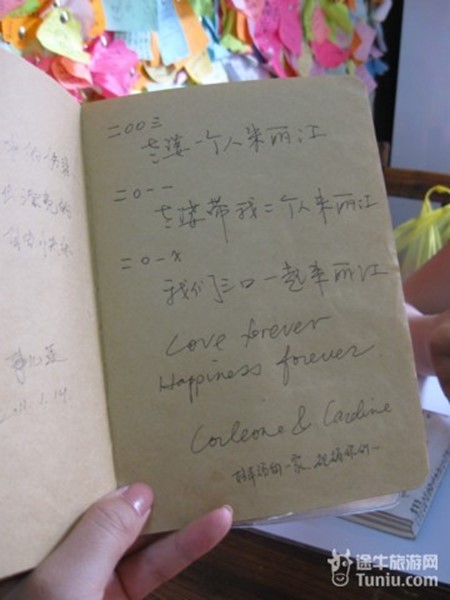 2011.1.14.
二00三
老婆一个人来丽江
二0一一
老婆带我二个人来丽江
二0一x
我们三口一起来丽江
Love forever
Happiness forever
Corleone & Caroline
好幸福的一家,祝福你们~
途牛旅游网
Tuniu.com